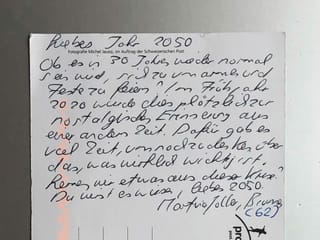 Liebes Jahr 2050
Fotografie Michel Jaussi, im Auftrag der Schweizerischen Post
Ob es in 30 Jahren wieder normal
sein wird, sich zu umarmen und
Feste zu feiern? Im Frühjahr
2020 wurde dies plötzlich zur
nostalgischen Erinnerung aus
einer andern Zeit. Dafür gab es
viel Zeit, um nachzudenken über
das, was wirklich wichtig ist.
Lernen wir etwas aus dieser Krise?
Du wirst es wissen, liebes 2050.
(62)
pro